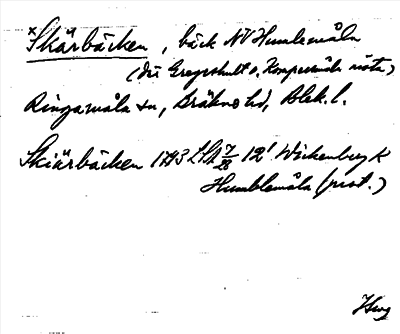 × Skärbäcken, bäck NV Humlemåla
(där Gregershult o. Kongsmåla mötas)
Ringamåla sn, Bräkne hd, Blek. l.
Skiärbäcken 1793 LSA 7/28 12' Wickenberg K
Humblemåla (prot.)